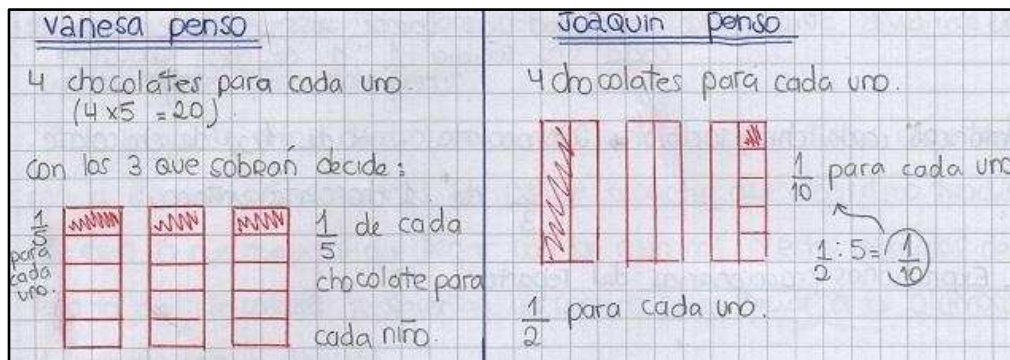 Vanesa penso
4 chocolates para cada uno.
(4 x 5 = 20)
con los 3 que sobran decide:
1/5
para
cada
uno.
1/5 de cada
chocolate para
cada niño.
Joaquin penso
4 chocolates para cada uno.
1/10 para cada uno
1/2 : 5 = 1/10
1/2 para cada uno.